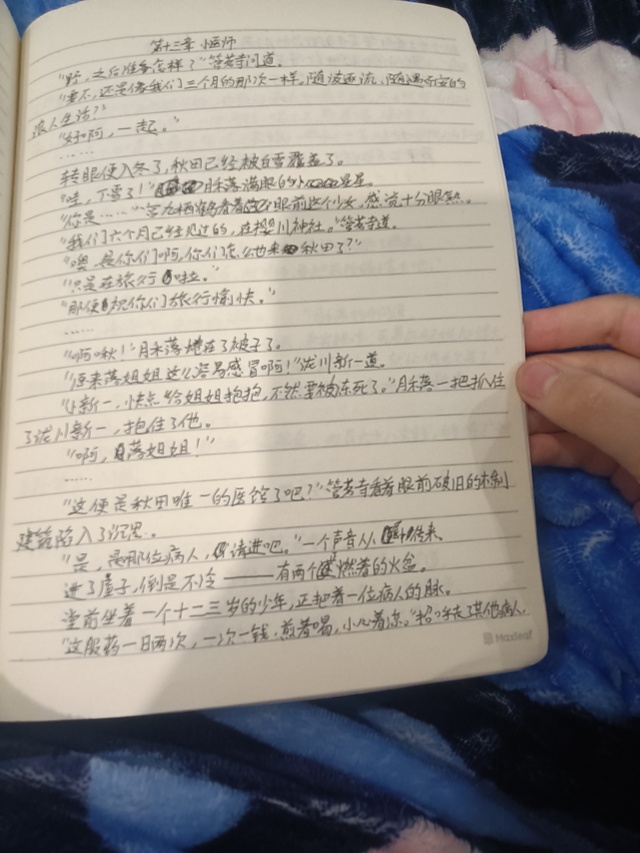 第十三章 小医师
"野,之后准备怎样了"管若寺问道。
"要不,还是像我们三个月的那次一样,随波逐流,随遇而安的
浪人生活?"
"好啊,一起。"
……
转眼便入冬了,秋田已经被白雪覆盖了。
"哇,下雪了!"月禾落满眼的小星星。
"你是……"看着眼前这个少女,感觉十分眼熟。
"我们六个月已经见过的,在樱川神社。"管若寺道。
"噢,是你们啊,你们怎么也来秋田了?"
"只是在旅行啦。"
"那便祝你们旅行愉快。"
……
"啊啾!"月禾落缩在了被子了。
"原来落姐姐这么容易感冒啊!"泷川新一道。
"小新一,快点给姐姐抱抱,不然要被冻死了。"月禾落一把抓住
了泷川新一,抱住了他。
"啊,落姐姐!"
……
"这便是秋田唯一的医馆了吧?"管若寺看着眼前破旧的木制
建筑陷入了沉思。
"是,是那位病人,请进吧。"一个声音从传来。
进了屋子,倒是不冷——有两个燃着的火盆。
堂前坐着一个十二三岁的少年,正把着一位病人的脉。
"这服药一日两次,一次一钱,煎着喝,小心着凉。"招呼走了其他病人,
Maxleaf